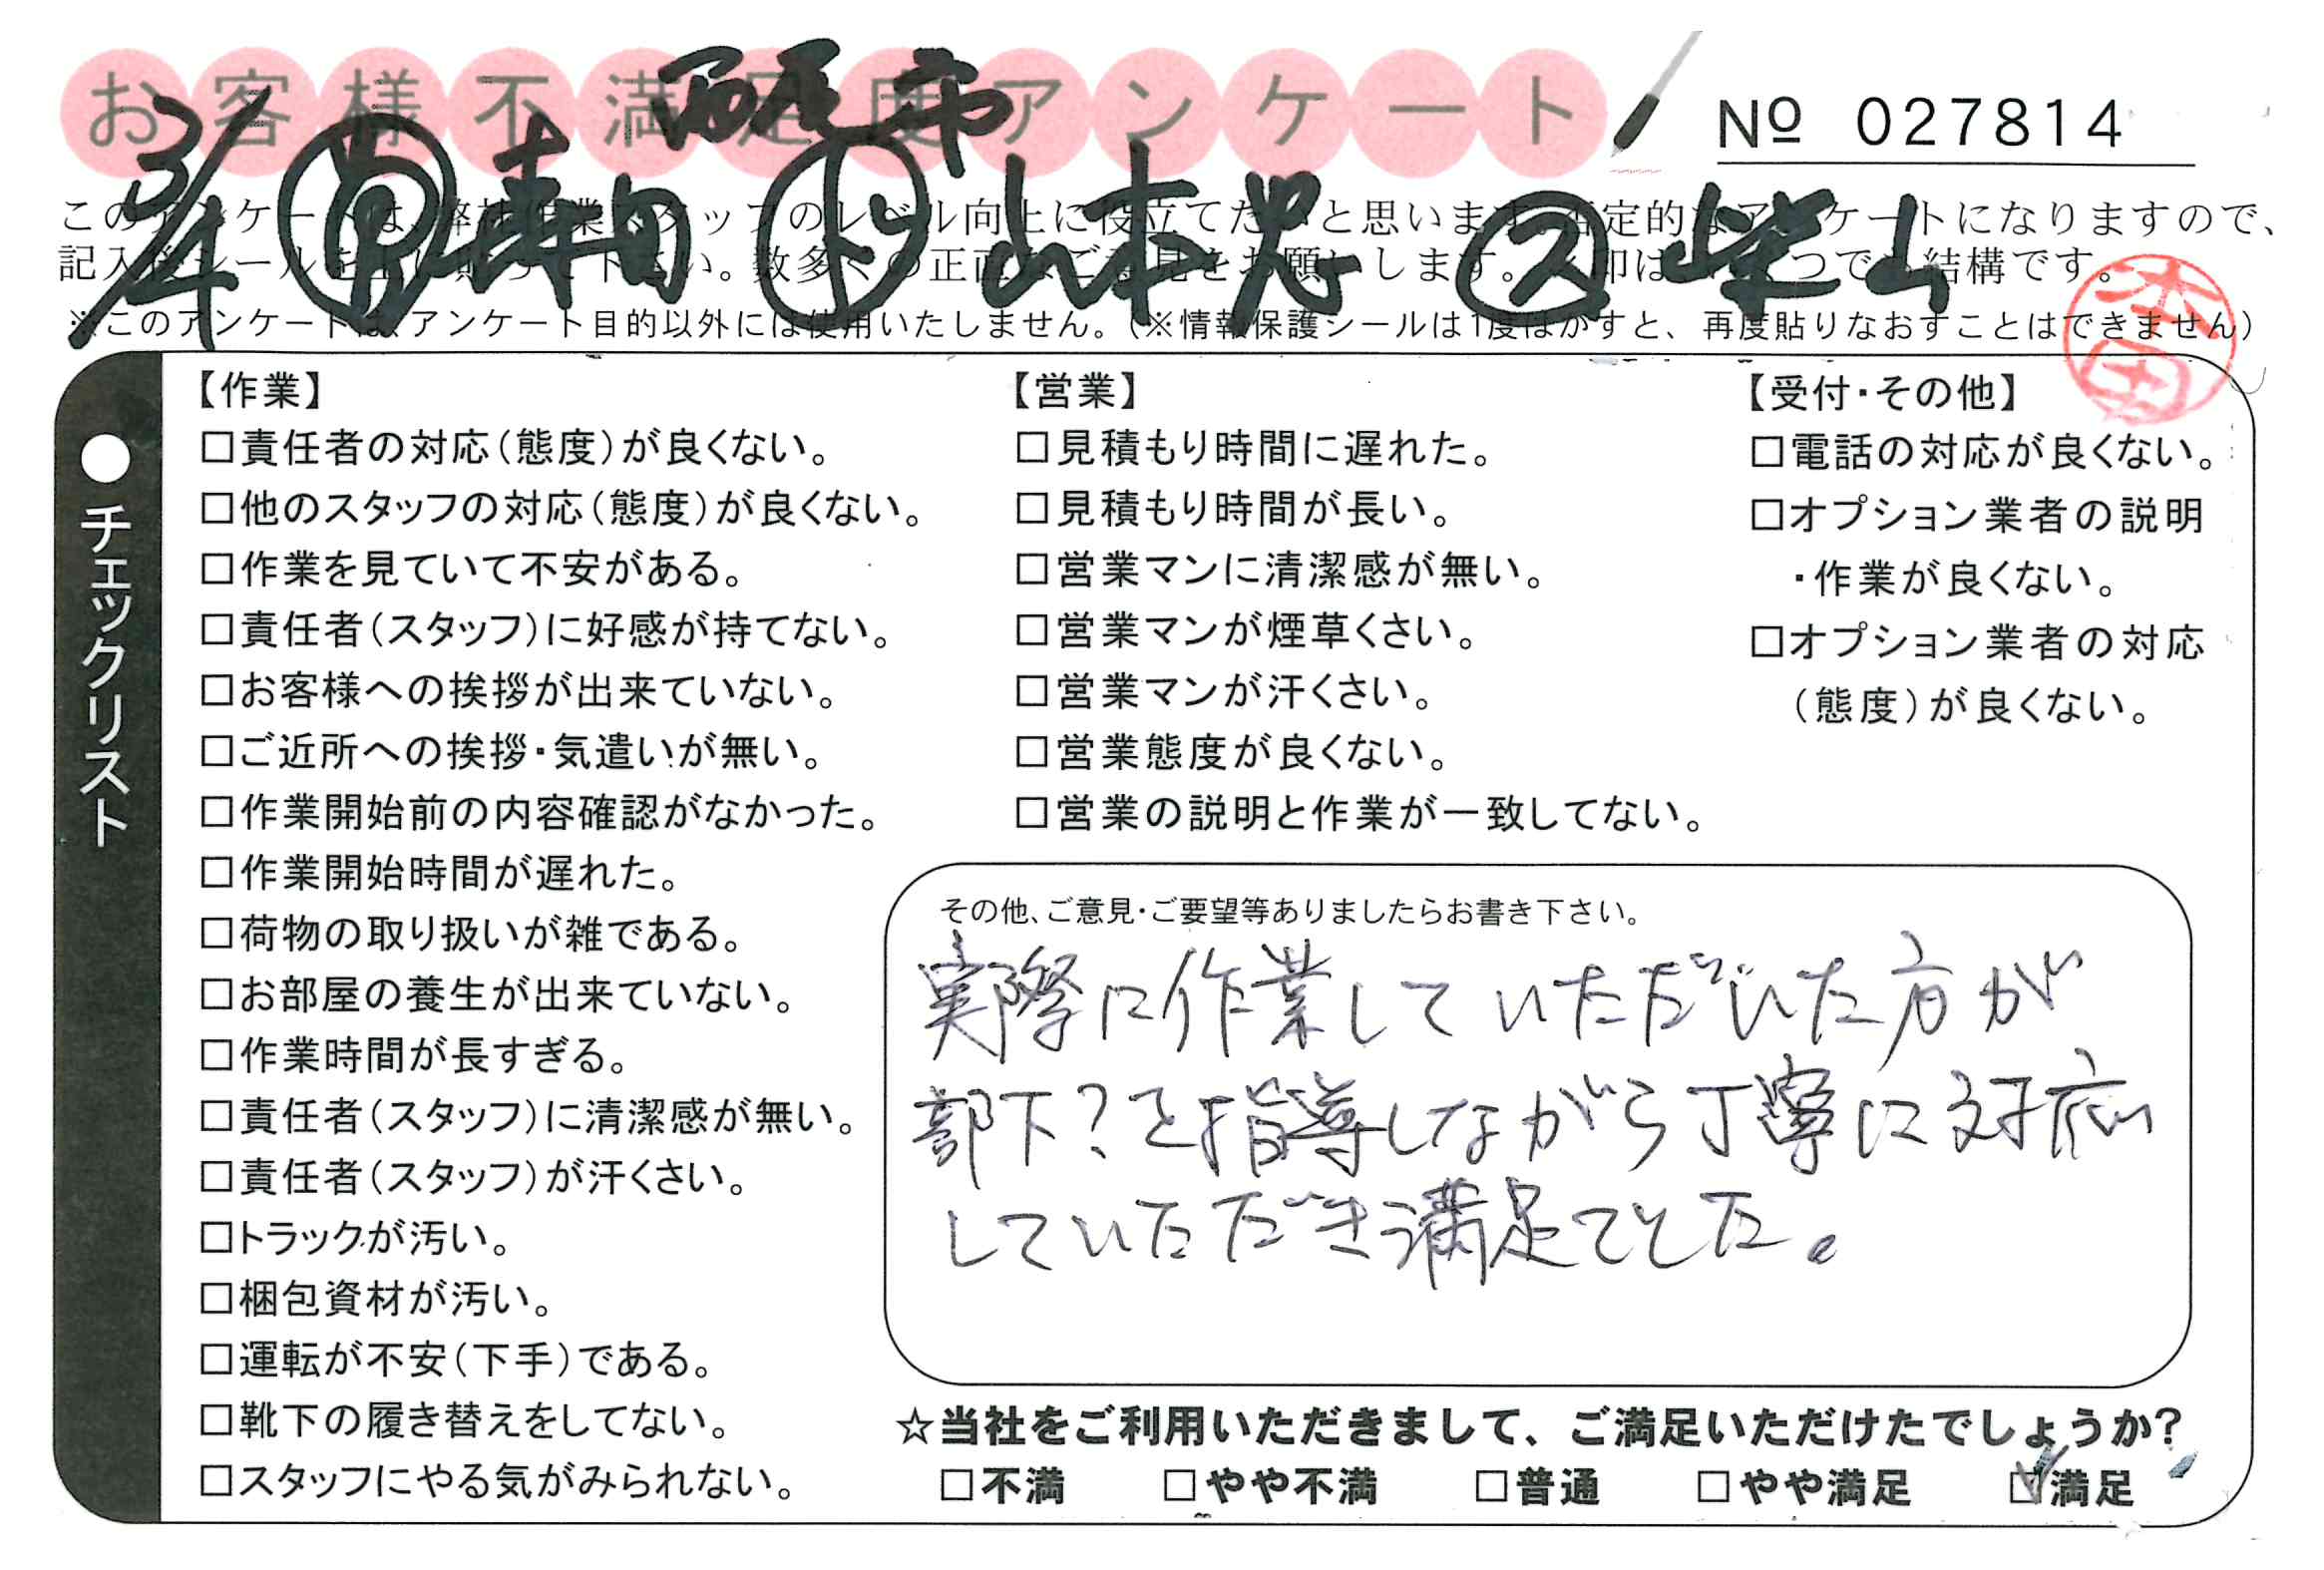 お客様不満足度アンケート
№ 027814
3/4
山本
ス 柴山
このアンケートは、弊社作業スタッフのレベル向上に役立てたいと思います。否定的なアンケートになりますので、
※このアンケートは、アンケート目的以外には使用いたしません。(※情報保護シールは1度はがすと、再度貼りなおすことはできません)
本田
●チェックリスト
【作業】
□責任者の対応(態度)が良くない。
□他のスタッフの対応(態度)が良くない。
□作業を見ていて不安がある。
□責任者(スタッフ)に好感が持てない。
□お客様への挨拶が出来ていない。
□ご近所への挨拶・気遣いが無い。
□作業開始前の内容確認がなかった。
□作業開始時間が遅れた。
□荷物の取り扱いが雑である。
□お部屋の養生が出来ていない。
□作業時間が長すぎる。
□責任者(スタッフ)に清潔感が無い。
□責任者(スタッフ)が汗くさい。
□トラックが汚い。
□梱包資材が汚い。
□運転が不安(下手)である。
□靴下の履き替えをしてない。
□スタッフにやる気がみられない。
【営業】
□見積もり時間に遅れた。
□見積もり時間が長い。
□営業マンに清潔感が無い。
□営業マンが煙草くさい。
□営業マンが汗くさい。
□営業態度が良くない。
□営業の説明と作業が一致してない。
【受付・その他】
□電話の対応が良くない。
□オプション業者の説明
・作業が良くない。
□オプション業者の対応
(態度)が良くない。
その他、ご意見・ご要望等ありましたらお書き下さい。
実際に作業していただいた方が
部下?を指導しながら丁寧に対応
していただき満足でした。
☆当社をご利用いただきまして、ご満足いただけたでしょうか?
□不満 □やや不満 □普通 □やや満足 ☑満足